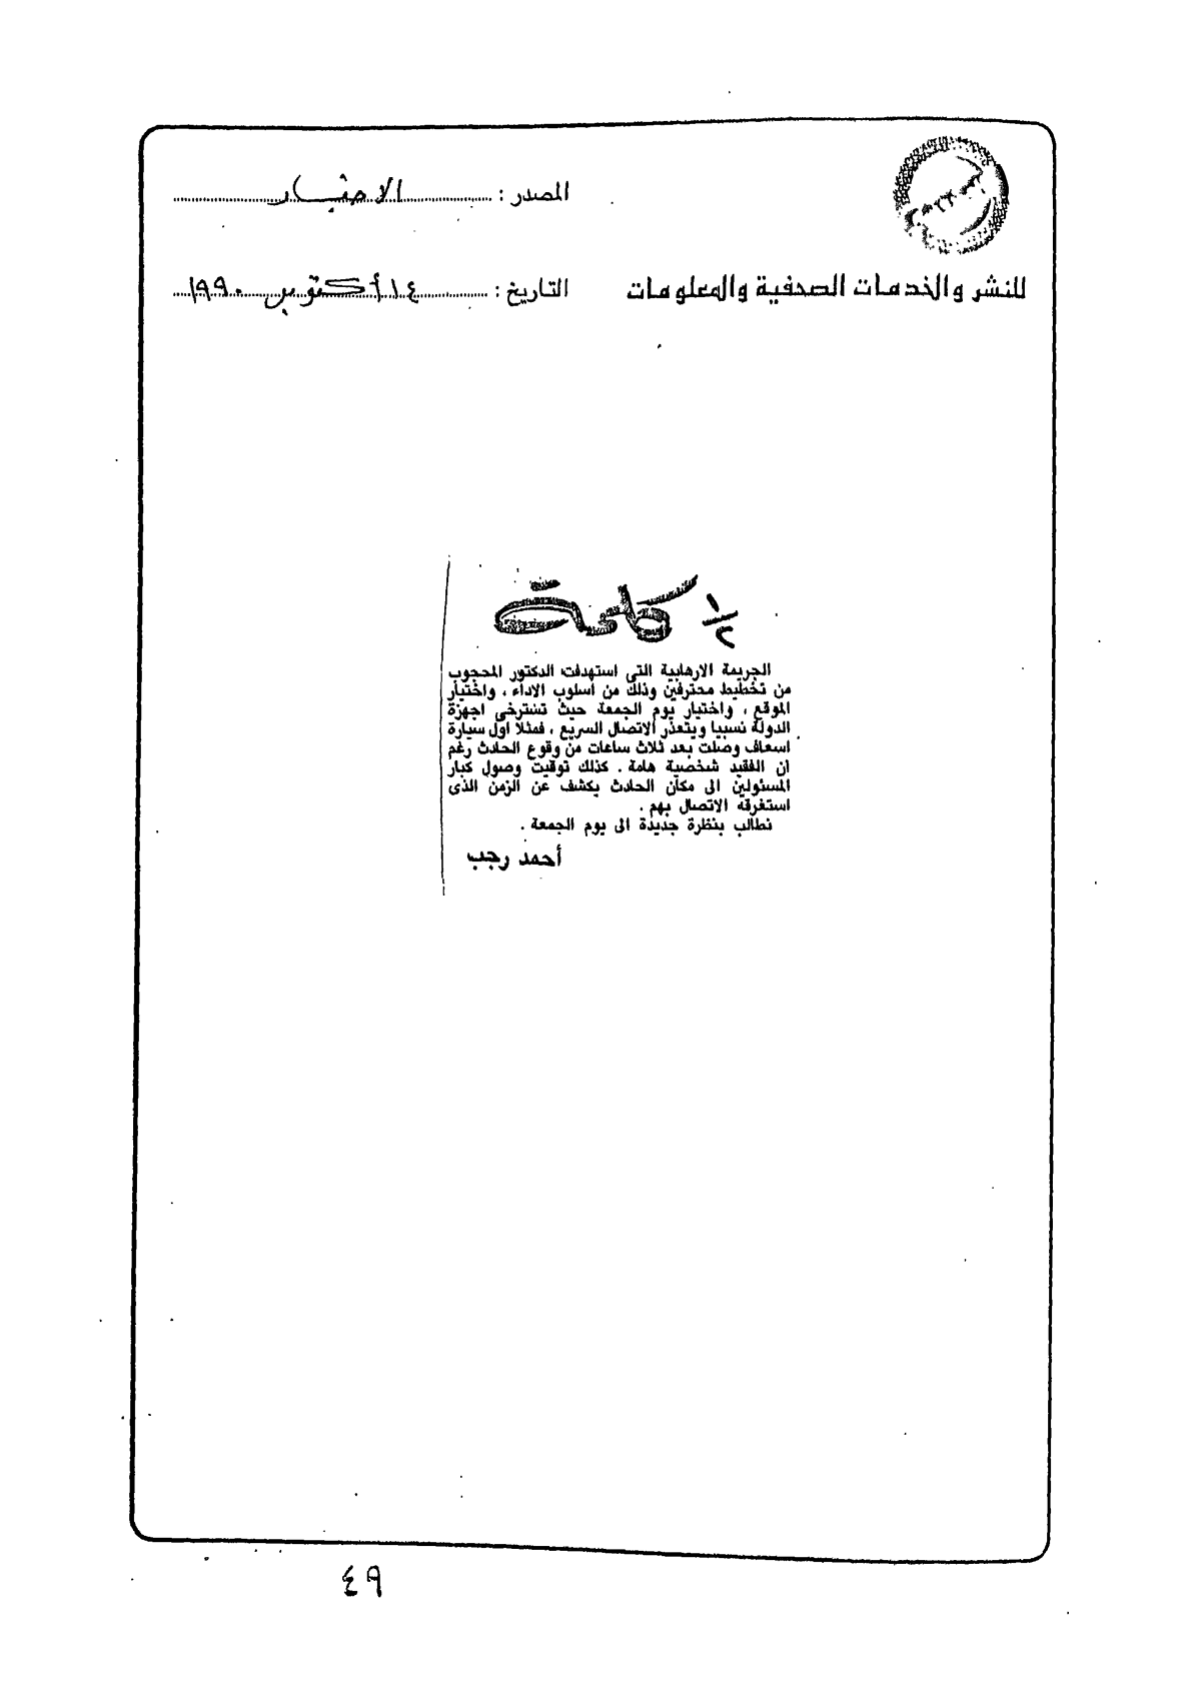 المصدر : الاخبار
للنشر والخدمات الصحفية والمعلومات
التاريخ : ١٤ أكتوبر ١٩٩٠
١/٢ كلمة
الجريمة الارهابية التى استهدفت الدكتور المحجوب
من تخطيط محترفين وذلك من اسلوب الاداء ، واختيار
الموقع ، واختيار يوم الجمعة حيث تسترخى اجهزة
الدولة نسبيا ويتعذر الاتصال السريع ، فمثلا اول سيارة
اسعاف وصلت بعد ثلاث ساعات من وقوع الحادث رغم
ان الفقيد شخصية هامة . كذلك توقيت وصول كبار
المسئولين الى مكان الحادث يكشف عن الزمن الذى
استغرقه الاتصال بهم .
نطالب بنظرة جديدة الى يوم الجمعة .
أحمد رجب
٤٩